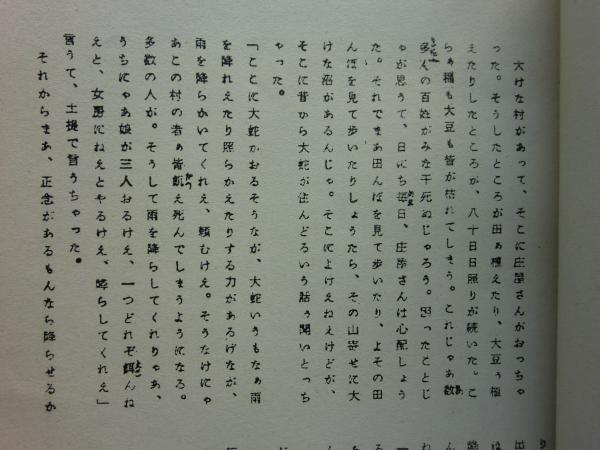 大けな村があって、そこに庄屋さんがおっちゃ
った。そうしたところが田ぁ植えたり、大豆ぅ植
えたりしたところが、八十日日照りが続いた。こ
らぁ稲も大豆も皆が枯れてしまう。これじゃあ数
多くの百姓がみな干死ぬじゃろう。困ったことじ
ゃが思うて、日にち毎日、庄屋さんは心配しょう
た。それでまあ田んぼを見て歩いたり、よその田
んぼを見て歩いたりしょうたら、その山寄せに大
けな沼があるんじゃ。そこによけえねえけどが、
そこに昔から大蛇が住んどるいう話ぅ聞いとっち
ゃった。
「ここに大蛇がおるそうなが、大蛇いうもなぁ雨
を降れえたり照らかえたりする力があるげなが、
雨を降らかいてくれえ、頼むけえ。そうなけにゃ
あこの村の者ぁ皆飢え死んでしまうようになる。
多数の人が。そうして雨を降らしてくれりゃあ、
うちにゃあ娘が三人おるけえ、一つどれぞ餌んね
えと、女房にねえとやるけえ、降らしてくれえ」
言うて、土堤で言うちゃった。
それからまあ、正念があるもんなら降らせるか